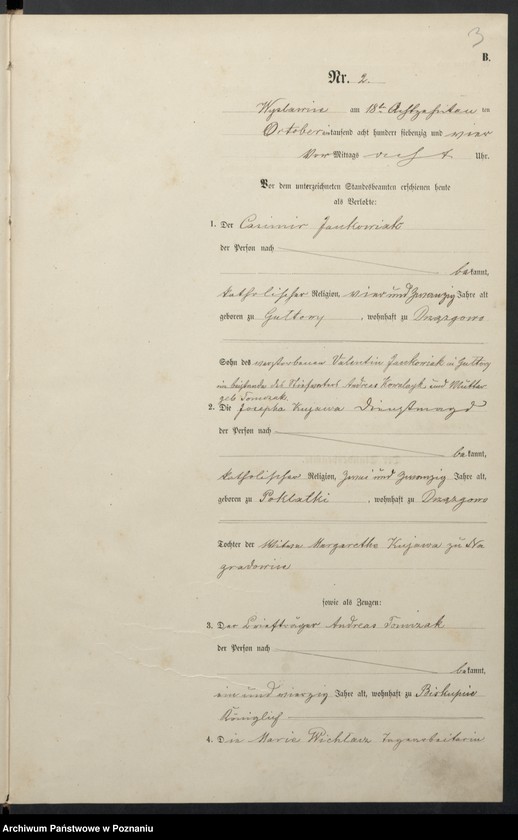 3
B.
Nr. 2.
Wyslawice am 18ten Achtzehnten
October tausend acht hundert siebenzig und vier
Vor Mittags acht Uhr.
Vor dem unterzeichneten Standesbeamten erschienen heute
als Verlobte:
1. Der Casimir Jankowiak
der Person nach
bekannt,
katholischer Religion, vier und zwanzig Jahre alt
geboren zu Gultowy, wohnhaft zu Drzązgowo
Sohn des verstorbenen Valentin Jankowiak in Gultowy
im beistande des Stiefvaters Andreas und Mutter
geb Tomczak
2. Die Josepha Kujawa Dienstmagd
der Person nach
bekannt,
katholischer Religion, zwei und zwanzig Jahre alt,
geboren zu Poklatki, wohnhaft zu Drzązgowo
Tochter der Witwe Margarethe Kujawa zu Na
gradowice
sowie als Zeugen:
3. Der Briefträger Andreas Tomczak
der Person nach
bekannt,
ein und vierzig Jahre alt, wohnhaft zu Biskupice
Königlich
4. Die Marie Wichlacz Tagearbeiterin
Archiwum Państwowe w Poznaniu